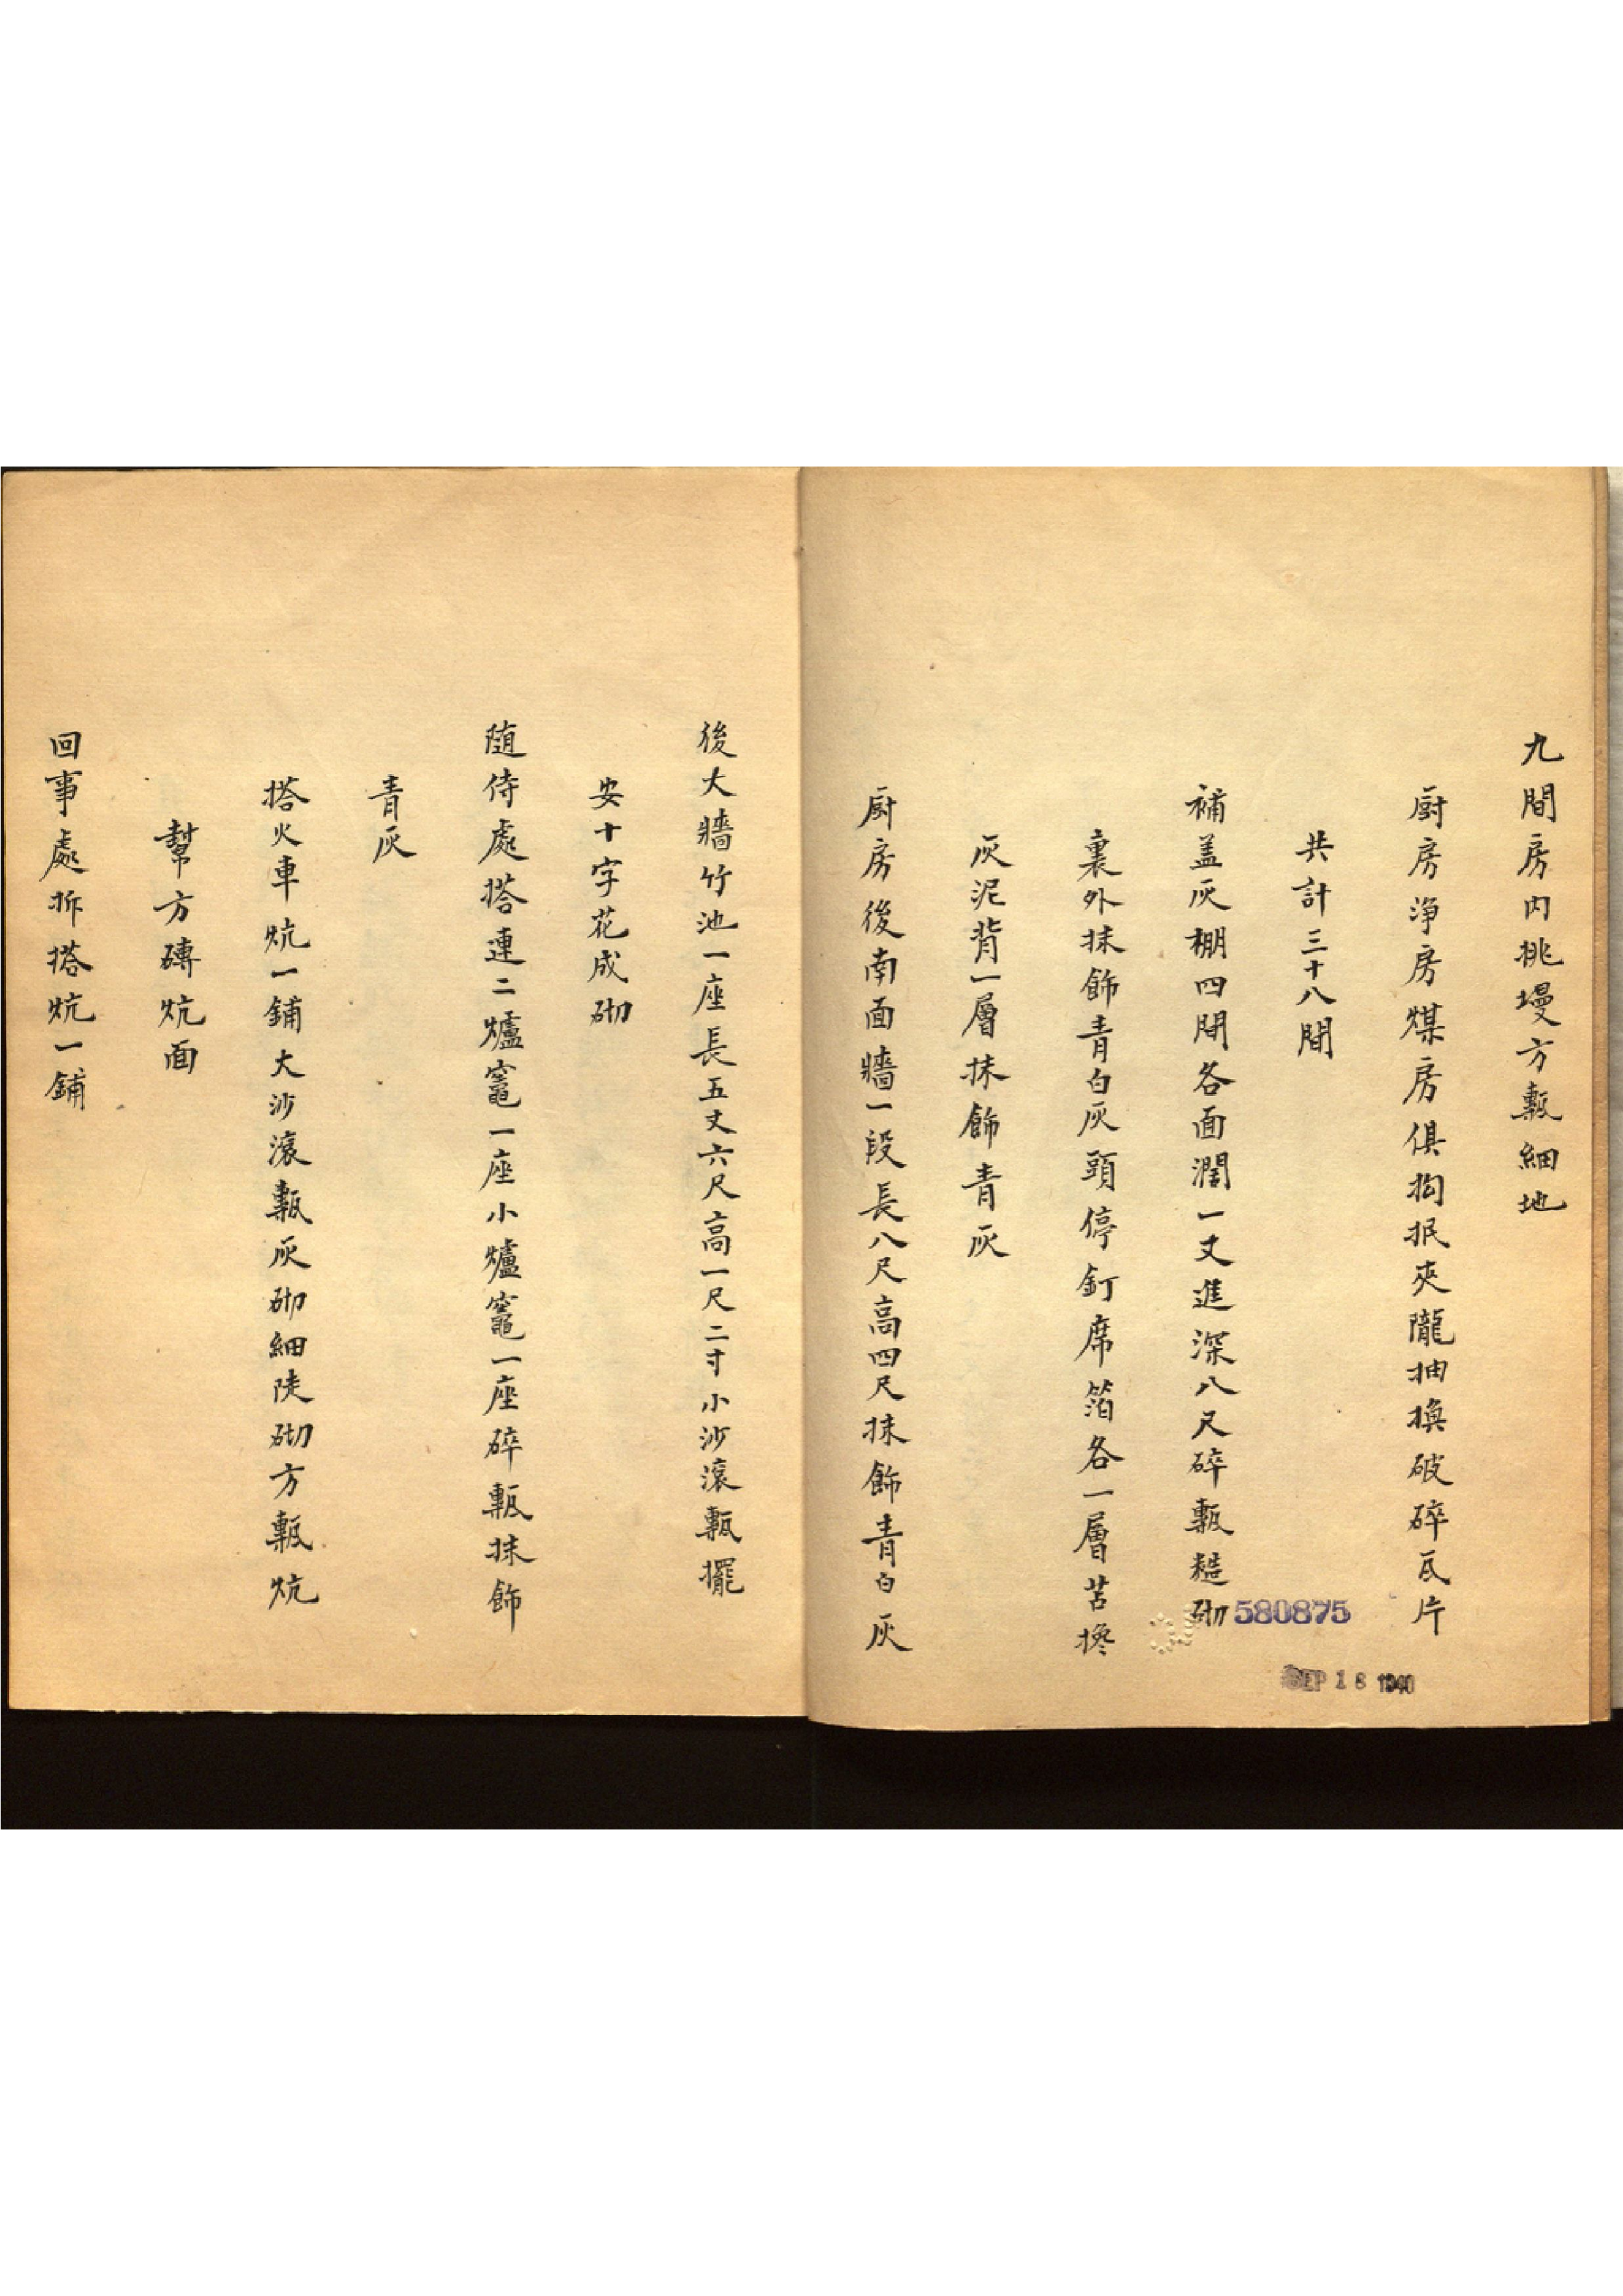 九間房内挑墁方甎細地
厨房淨房煤房俱抅抿夾隴抽換破碎瓦片
共計三十八間
補盖灰棚四間各面濶一丈進深八尺碎甎糙砌
裏外抹飾青白灰頭停釘席箔各一層苫攙
灰泥背一層抹飾青灰
厨房後南面牆一段長八尺高四尺抹飾青白灰
580875
SEP 18 1940
後大牆竹池一座長五丈六尺高一尺二寸小沙滾甎擺
安十字花成砌
随侍處搭連二爐竈一座小爐竈一座碎甎抹飾
青灰
搭火車炕一鋪大沙滾甎灰砌細陡砌方甎炕
幫方磚炕面
回事處拆搭炕一鋪